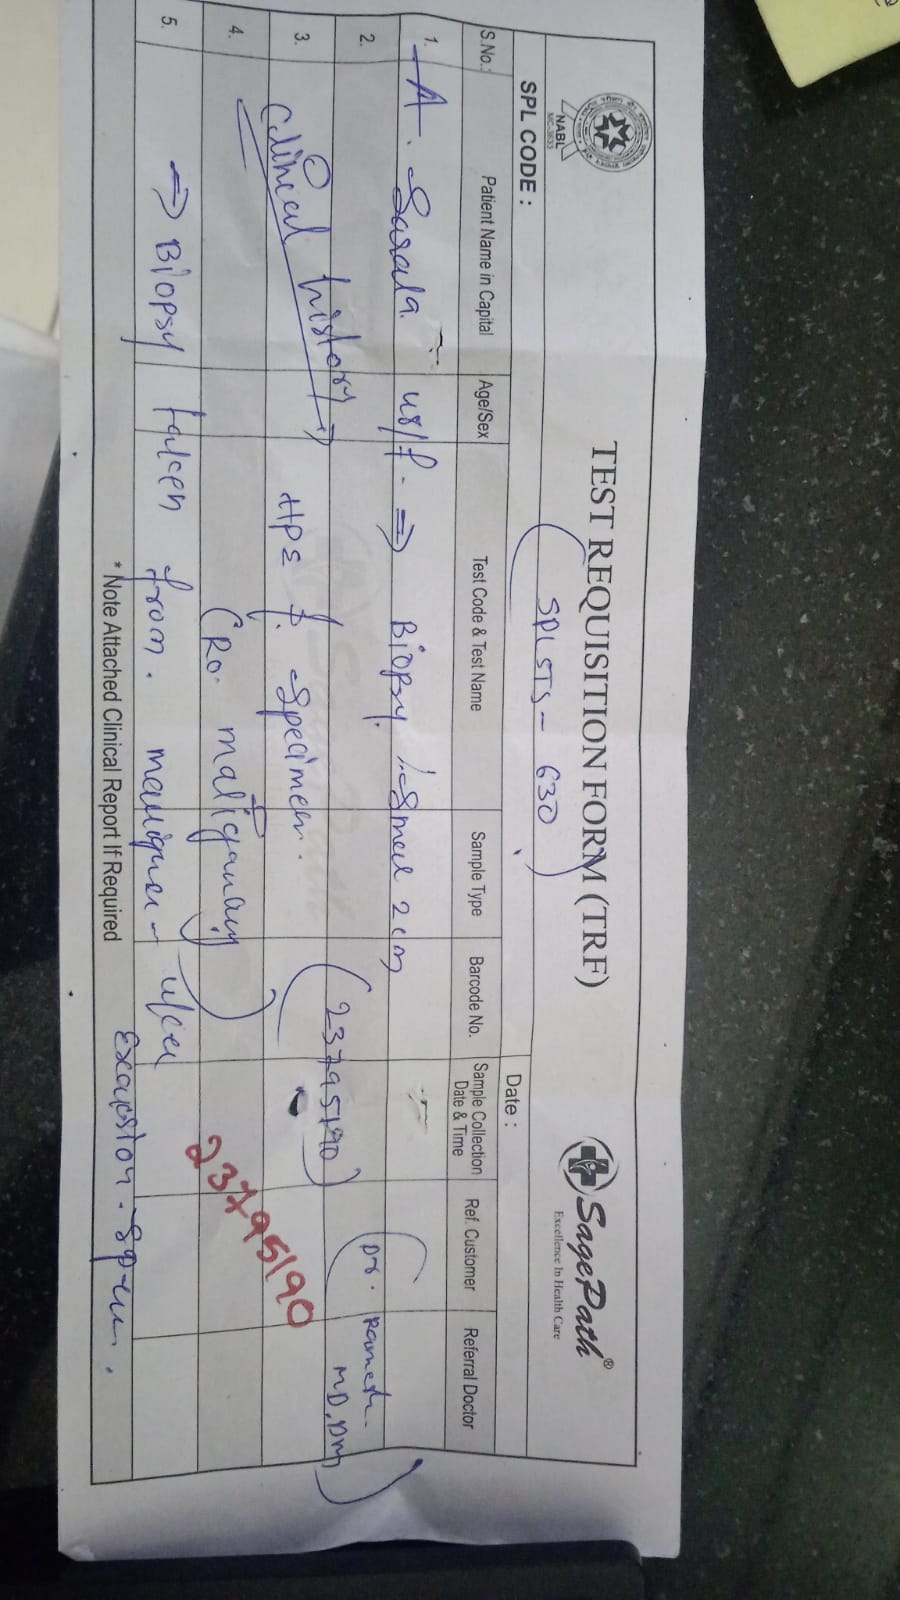 TEST REQUISITION FORM (TRF)
SagePath®
Excellence In Health Care
NABL
MC-3633
SPL CODE :
SPLSTS - 630
Date :
S.No.:
Patient Name in Capital
Age/Sex
Test Code & Test Name
Sample Type
Barcode No.
Sample Collection Date & Time
Ref. Customer
Referral Doctor
1. A. Sarala 48/f. ⇒ Biopsy. 2 cm
2. (23795190) (Dr. Ramesh. MD, DM)
3. Clinical history ⇒ HPE f. Specimen.
4. (Ro. malignancy) 23795190
5. ⇒ Biopsy taken from. ulcer
* Note Attached Clinical Report If Required